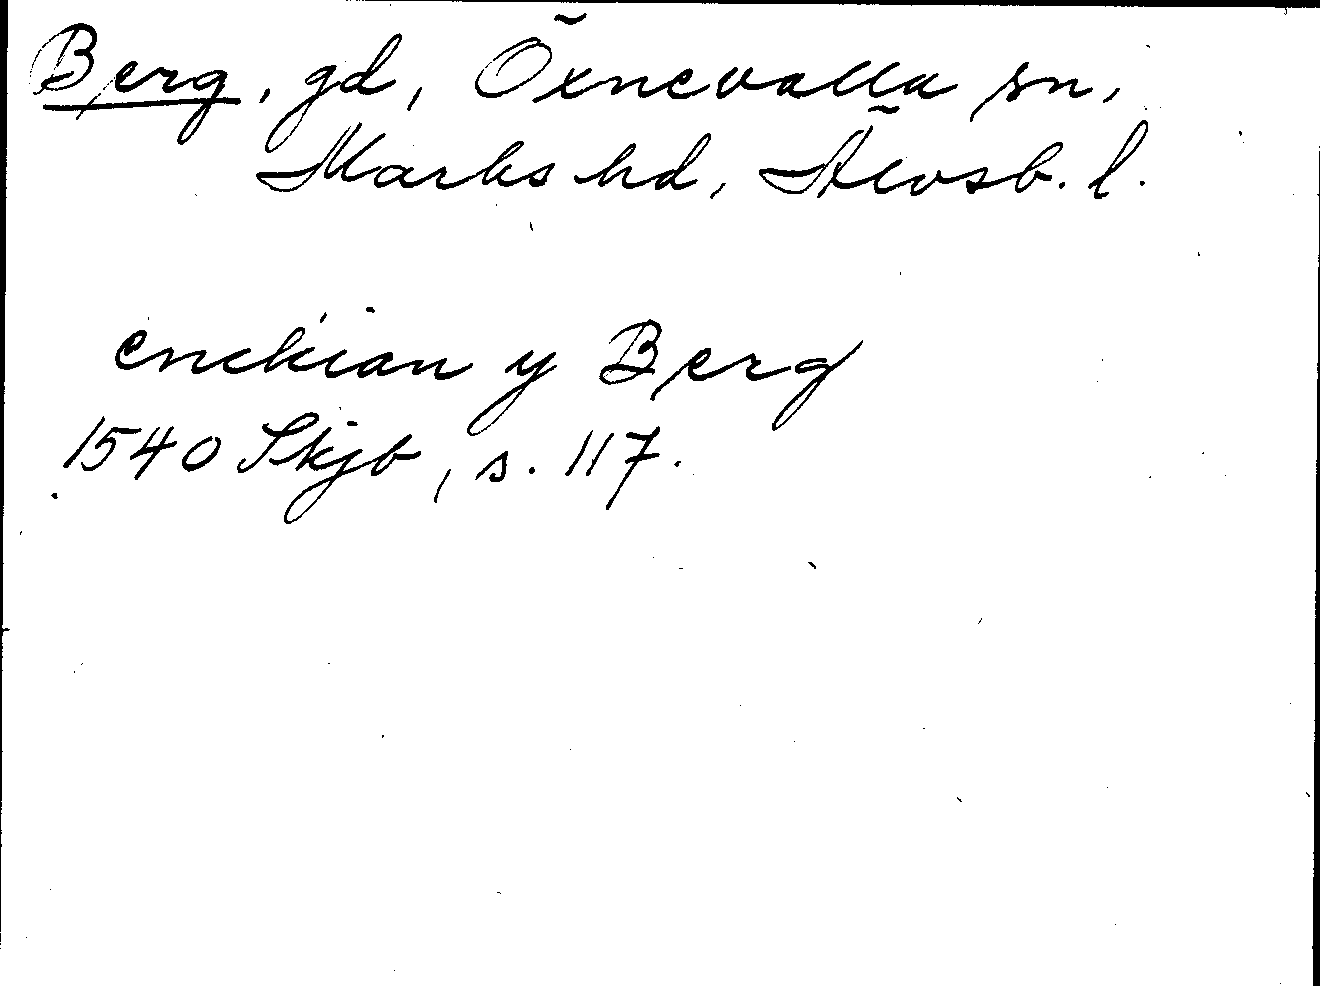 Berg, gd, Öxnevalla sn,
Marks hd, Älvsb. l.
enckian y Berg
1540 Skjb, s. 117.